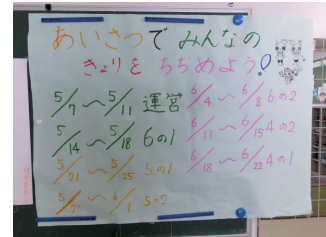 あいさつで みんなの
きょりを ちぢめよう!
5/7 〜 5/11 運営
5/14 〜 5/18 6の1
5/21 〜 5/25 5の1
〜 6/1 5の2
6/4 〜 6/8 6の2
6/11 〜 6/15 4の2
6/18 〜 6/22 4の1